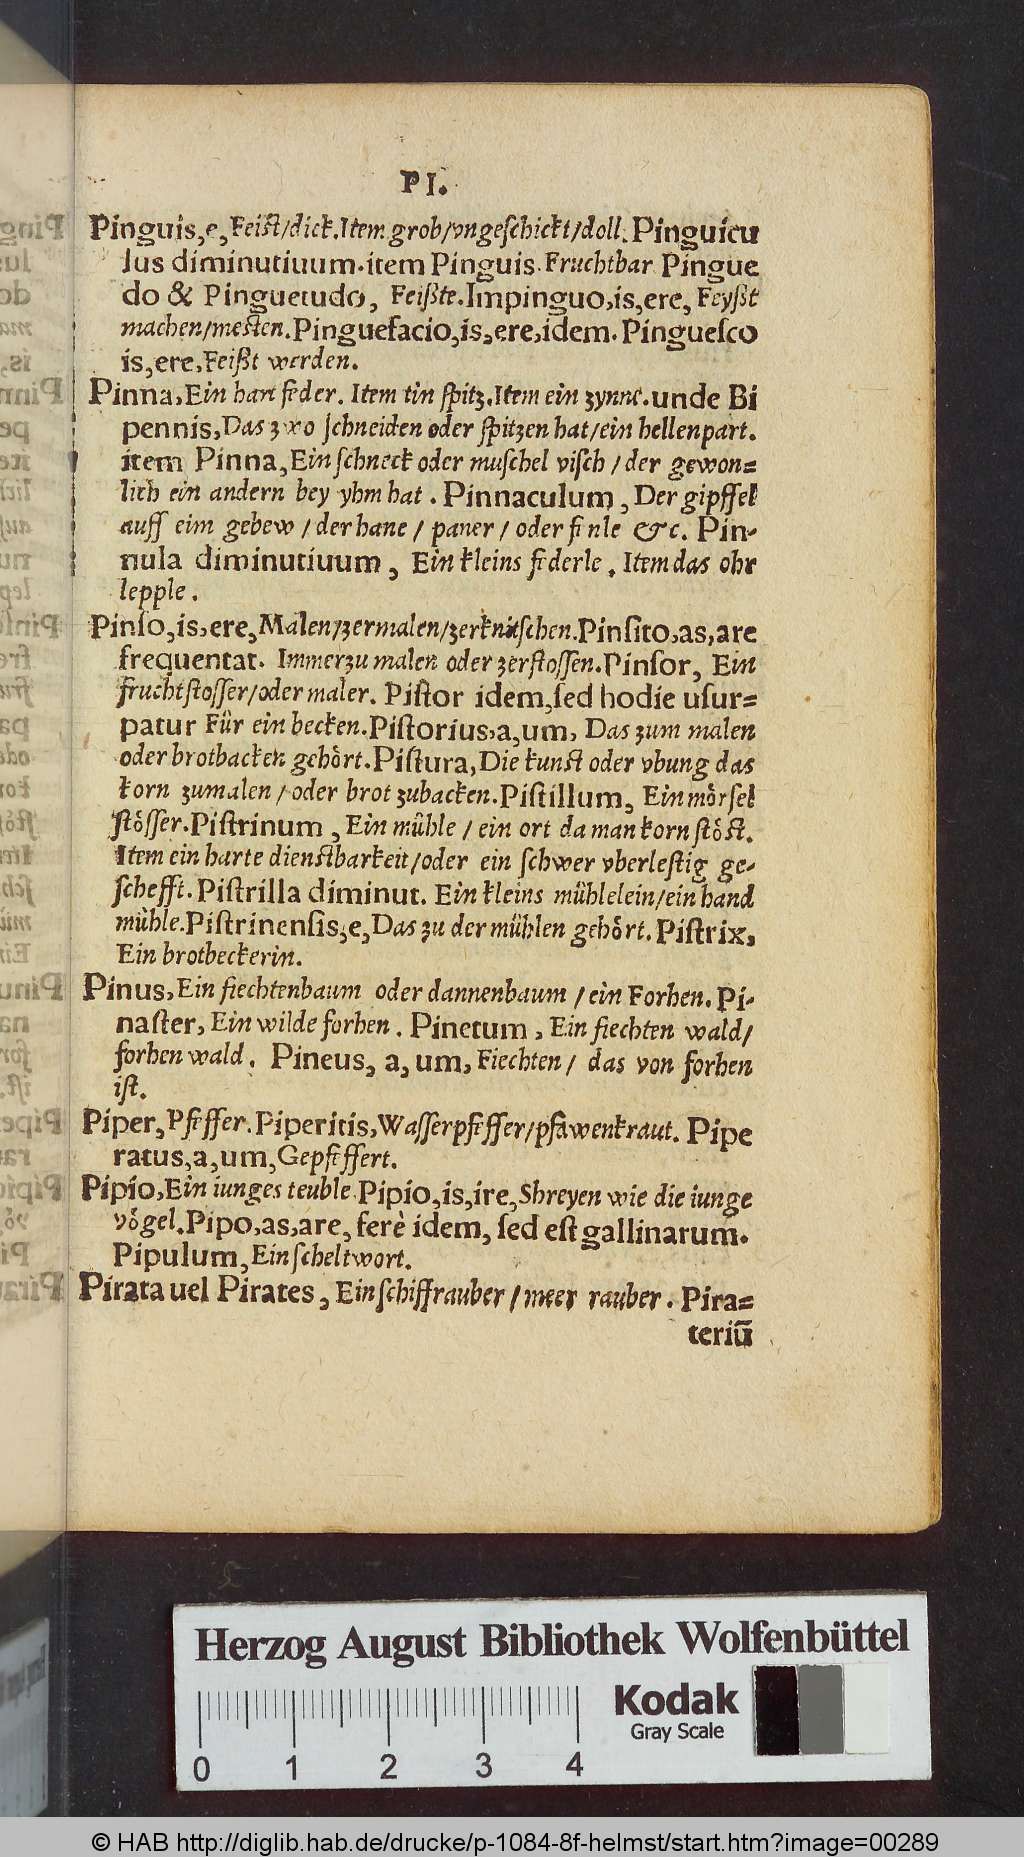 PI.
Pinguis,e, Feist/dick.Item grob/vngeschickt/doll.Pinguicu
lus diminutiuum.item Pinguis.Fruchtbar Pingue
do & Pinguetudo, Feißte.Impinguo,is,ere, Feyßt
machen/mesten.Pinguefacio,is,ere,idem.Pinguesco
is,ere,Feißt werden.
Pinna,Ein hart feder. Item ein spitz.Item ein zynne.unde Bi
pennis,Das zwo schneiden oder spitzen hat/ein hellenpart.
item Pinna,Ein schneck oder muschel visch/der gewon=
lich ein andern bey yhm hat. Pinnaculum, Der gipffel
auff eim gebew/der hane/paner/oder finle &c. Pin-
nula diminutiuum, Ein kleins federle. Item das ohr
lepple.
Pinso,is,ere,Malen/zermalen/zerknitschen.Pinsito,as,are
frequentat. Immerzu malen oder zerstossen.Pinsor, Ein
fruchtstosser/oder maler. Pistor idem,sed hodie usur=
patur Für ein becken.Pistorius,a,um, Das zum malen
oder brotbacken gehört.Pistura,Die kunst oder vbung das
korn zumalen/oder brot zubacken.Pistillum, Ein mörsel
stösser.Pistrinum, Ein mühle/ein ort da man korn stöst.
Item ein harte dienstbarkeit/oder ein schwer vberlestig ge-
schefft.Pistrilla diminut. Ein kleins mühlelein/ein hand
mühle.Pistrinensis,e,Das zu der mühlen gehört.Pistrix,
Ein brotbeckerin.
Pinus,Ein fiechtenbaum oder dannenbaum/ein Forhen.Pi-
naster,Ein wilde forhen. Pinetum, Ein fiechten wald/
forhen wald. Pineus, a, um, Fiechten/ das von forhen
ist.
Piper,Pfeffer.Piperitis,Wasserpfeffer/pfawenkraut. Pipe
ratus,a,um,Gepfeffert.
Pipio,Ein iunges teuble.Pipio,is,ire,Shreyen wie die iunge
vögel.Pipo,as,are, ferè idem, sed est gallinarum.
Pipulum,Ein scheltwort.
Pirata uel Pirates, Ein schiffrauber/meer rauber. Pira=
teriū
Herzog August Bibliothek Wolfenbüttel
Kodak
Gray Scale
0 1 2 3 4
© HAB http://diglib.hab.de/drucke/p-1084-8f-helmst/start.htm?image=00289